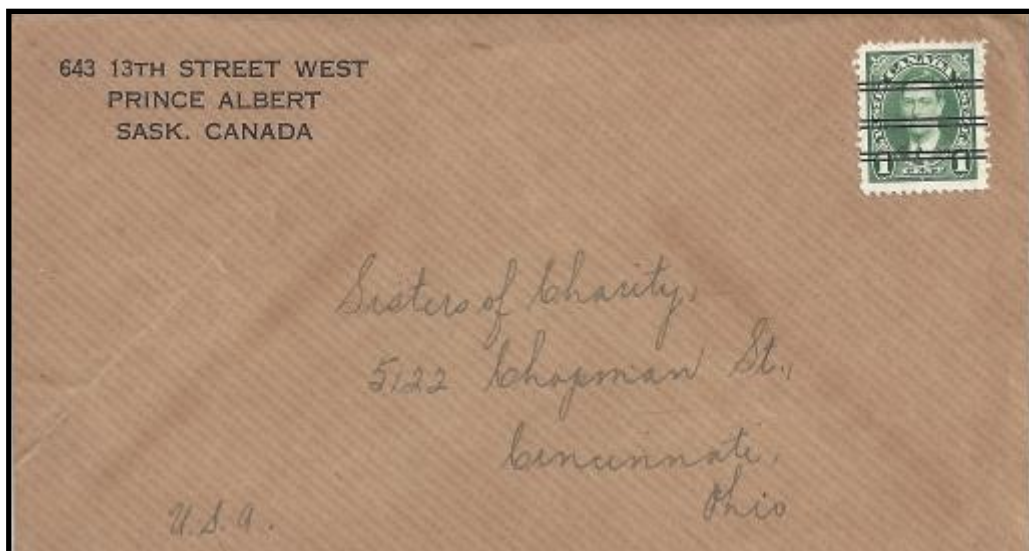 643 13TH STREET WEST
PRINCE ALBERT
SASK. CANADA
CANADA
1 CENT 1
Sisters of Charity,
5122 Chapman St.,
Cincinnati,
Ohio
U.S.A.